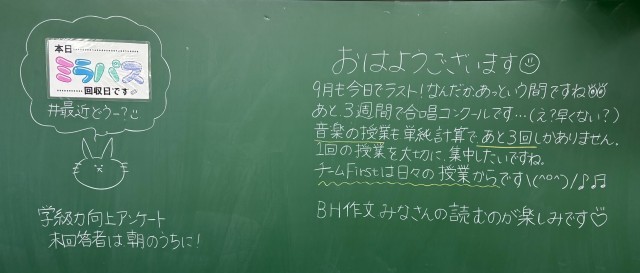 本日
ミラパス
回収日です
#最近どうー？
学級力向上アンケート
未回答者は朝のうちに！
おはようございます
9月も今日でラスト！なんだかあっという間ですね
あと3週間で合唱コンクールです…(え？早くない？)
音楽の授業も単純計算であと3回しかありません。
1回の授業を大切に、集中したいですね。
チームFirstは日々の授業からです\(^o^)/♪♫
BH作文みなさんの読むのが楽しみです♡